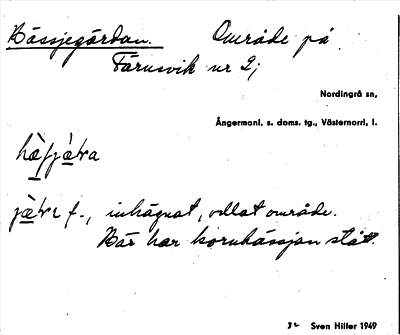 Hässjegärdan. Område på
Färnsvik nr 2;
Nordingrå sn,
Ångermanl. s. doms. tg., Västernorrl. l.
inhägnat, odlat område.
Här har kornhässjan stått.
Sven Hiller 1949